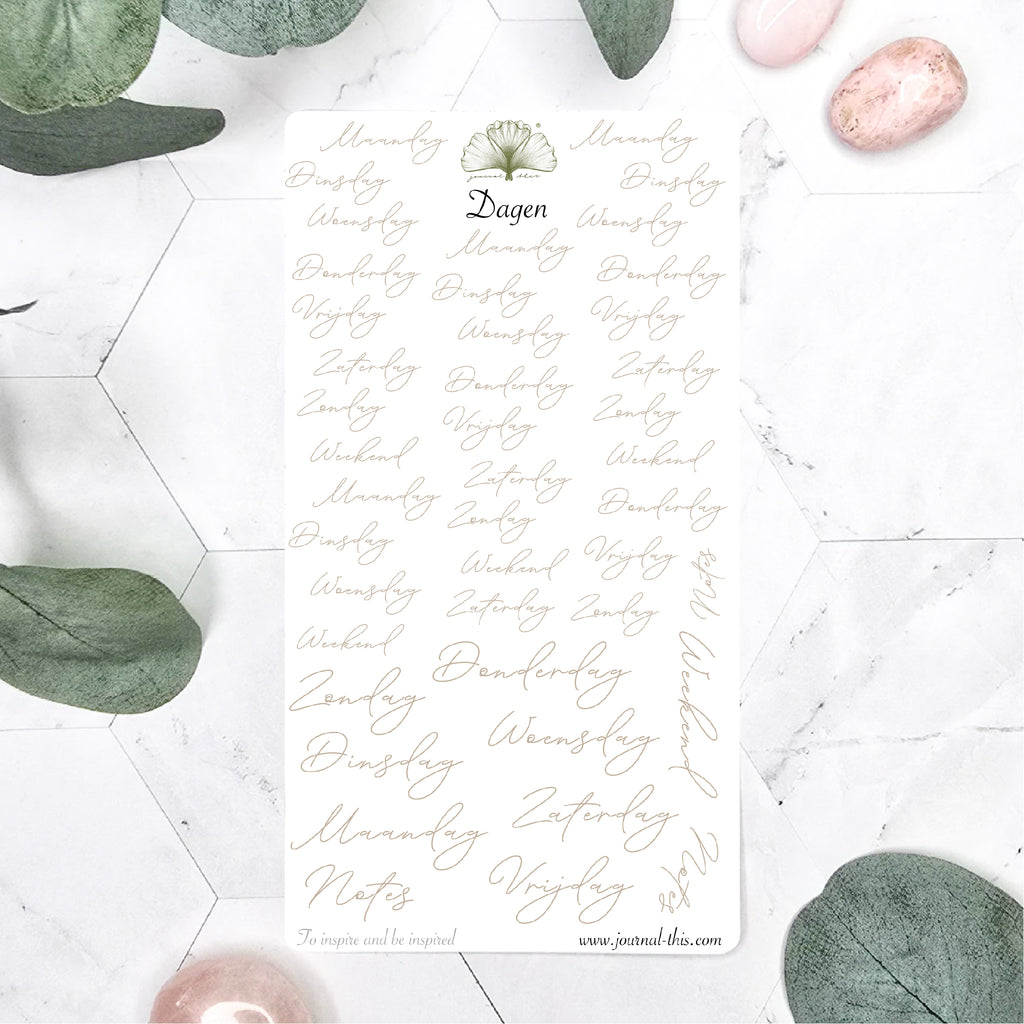 Maandag Maandag
journal this
Dinsdag Dinsdag
Dagen
Woensdag Woensdag
Maandag
Donderdag Donderdag
Dinsdag
Vrijdag Vrijdag
Woensdag
Zaterdag Zaterdag
Donderdag
Zondag Zondag
Vrijdag
Weekend Weekend
Zaterdag
Maandag Donderdag
Zondag
Dinsdag Vrijdag
Weekend
Woensdag Notes
Zaterdag Zondag
Weekend
Donderdag
Weekend
Zondag
Woensdag
Dinsdag
Zaterdag
Maandag
Vrijdag
Notes
Notes
To inspire and be inspired
www.journal-this.com